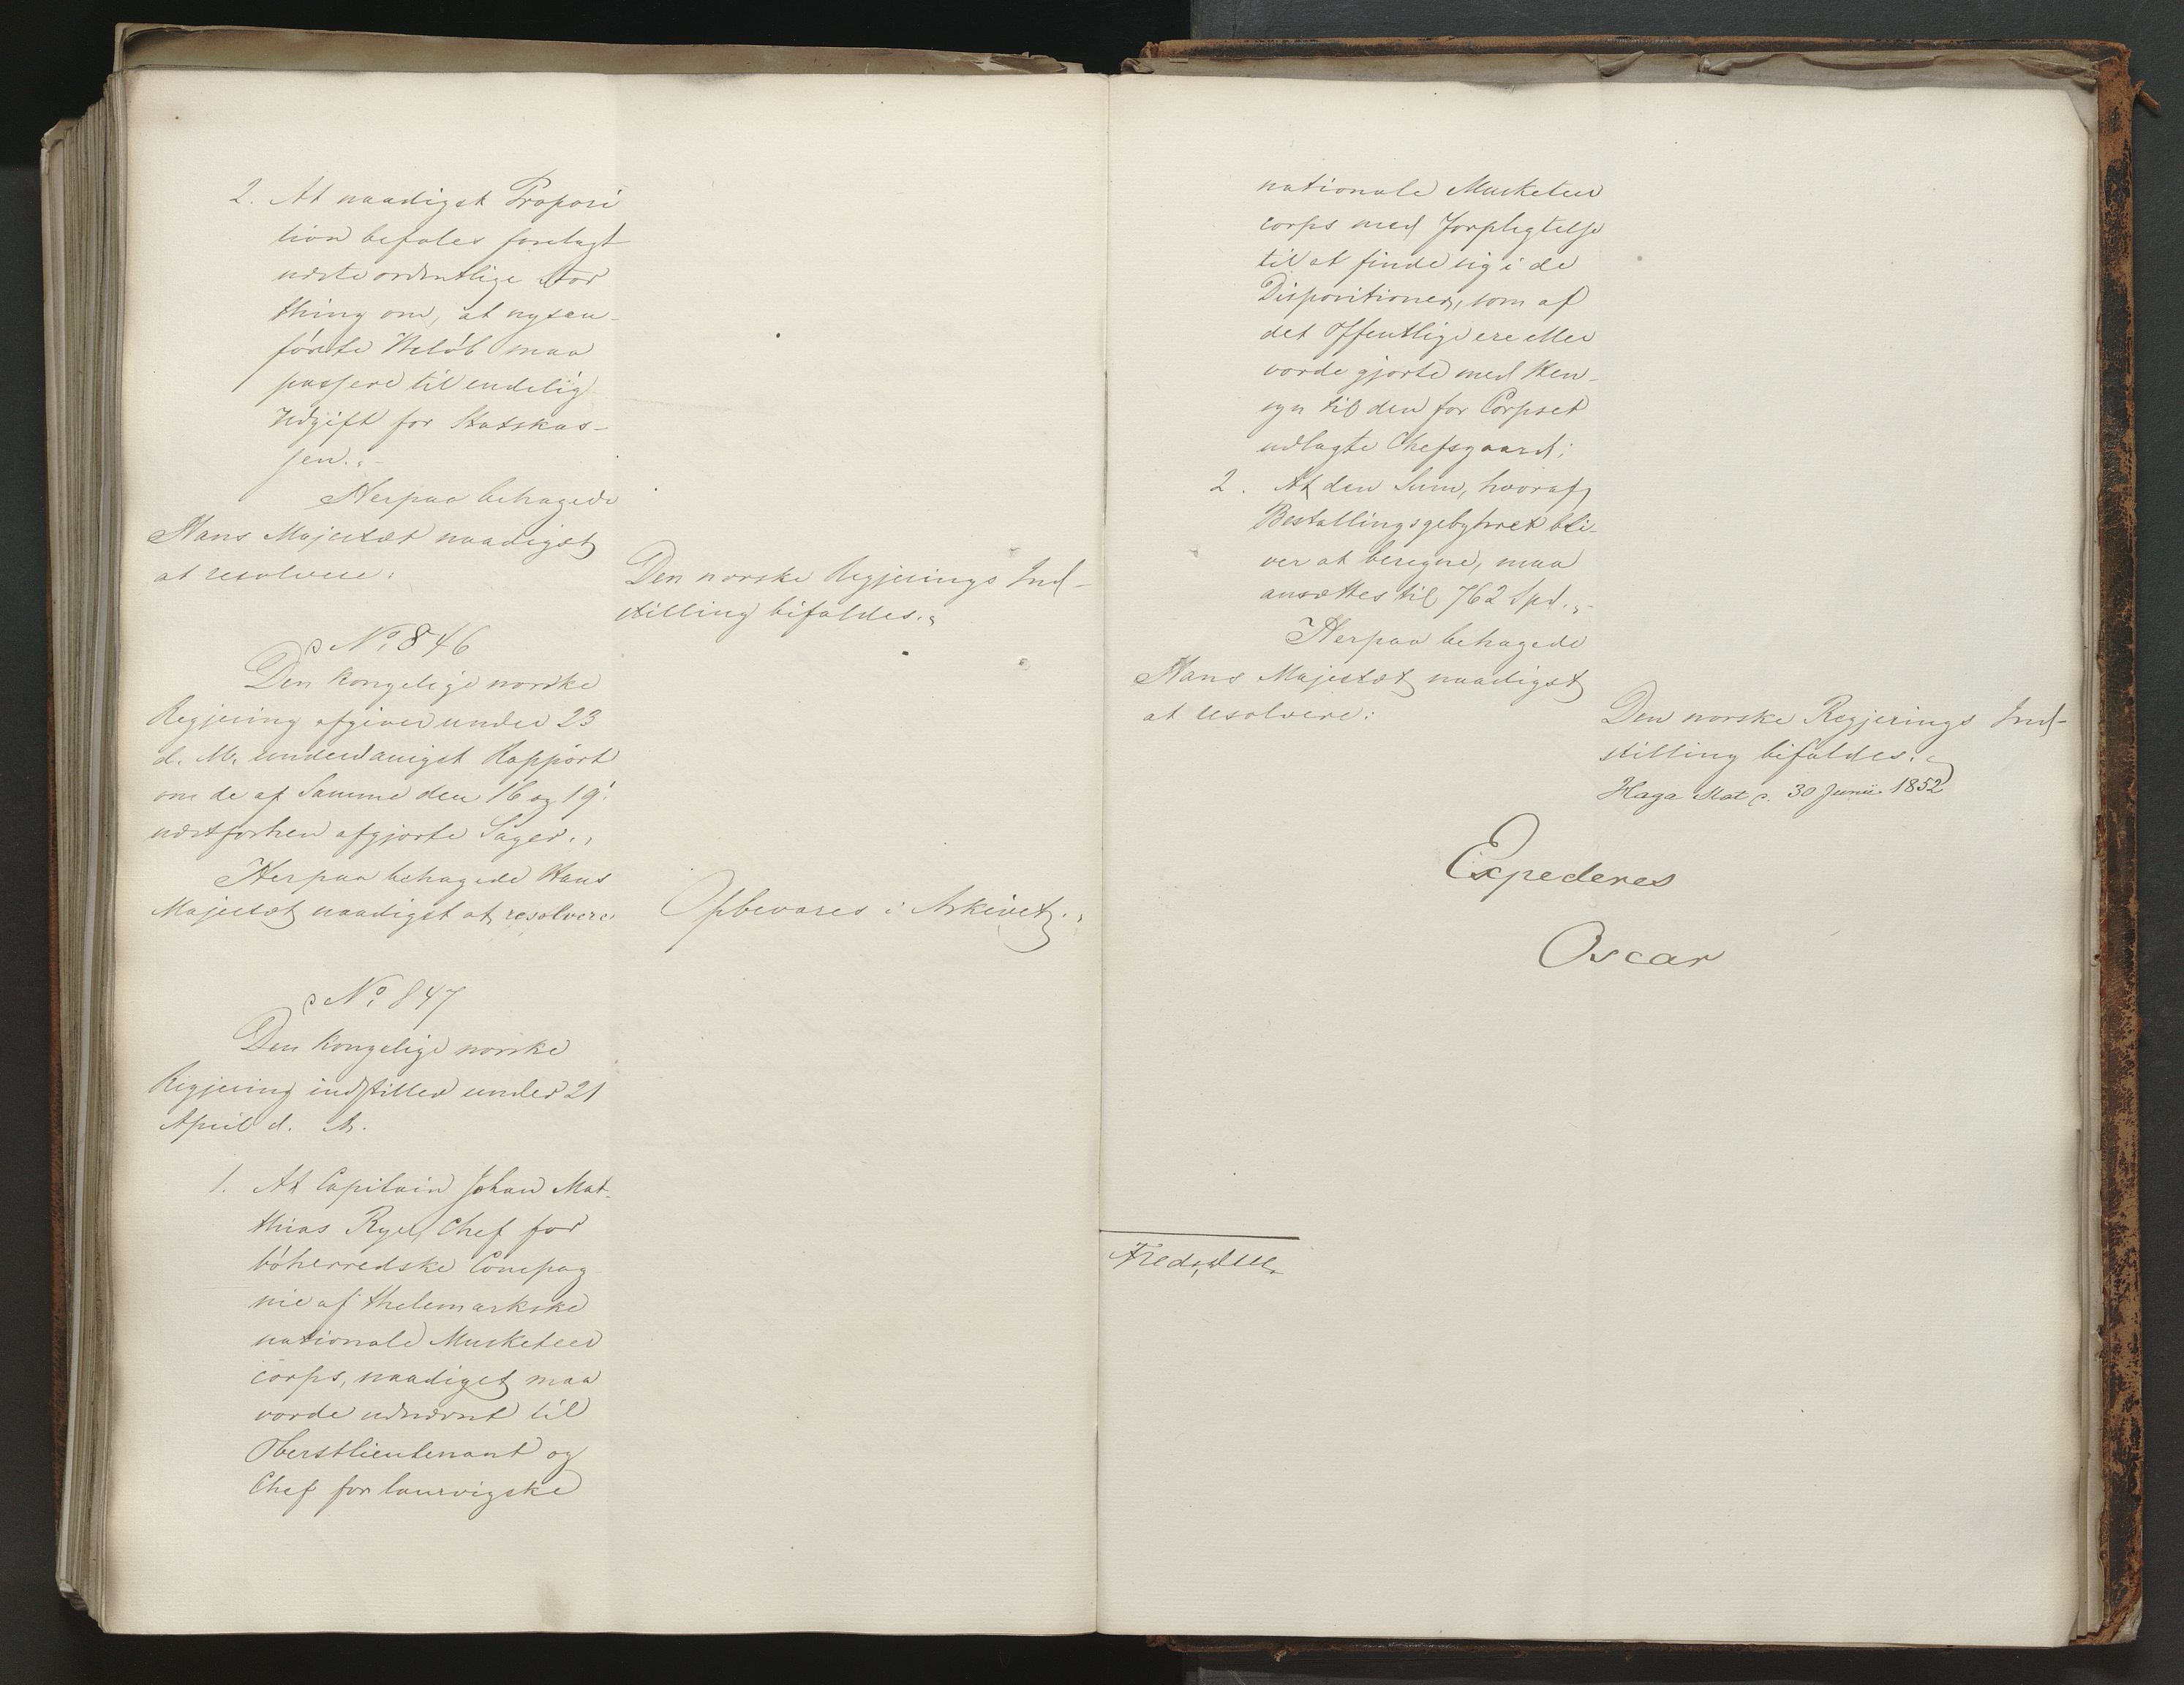 2. At naadigst Proposi
tion befales forelagt
næste ordentlige Stor
thing om, at nysan-
førte Beløb maa
passere til endelig
Udgift for Statskas-
sen.
Herpaa behagede
Hans Majestæt naadigst
at resolvere:
Den norske Regjerings Ind-
stilling bifaldes.
No. 846
Den kongelige norske
Regjering afgiver under 23
d. M. underdanigst Rapport
om de af Samme den 16 og 19.
næstforhen afgjorte Sager.
Herpaa behagede Hans
Majestæt naadigst at resolvere:
Opbevares i Arkivet.
No. 847
Den kongelige norske
Regjering indstiller under 21
April d. A.
1. At Capitain Johan Mat-
thias Rye, Chef for
böherredske Compag
nie af thelemarkske
nationale Musketeer
corps, naadigst maa
vorde udnævnt til
Oberstlieutenant og
Chef for laurvigske
nationale Musketeer
corps med Forpligtelse
til at finde sig i de
Dispositioner, som af
det Offentlige ere eller
vorde gjorte med Hen-
syn til den for Corpset
udlagte Chefsgaard;
2. At den Sum, hvoraf
Bestallingsgebyhret bli-
ver at beregne, maa
ansættes til 762 Spd.
Herpaa behagede
Hans Majestæt naadigst
at resolvere:
Den norske Regjerings Ind-
stilling bifaldes.
Haga Slot d. 30 Junii 1852
Expederes
Oscar